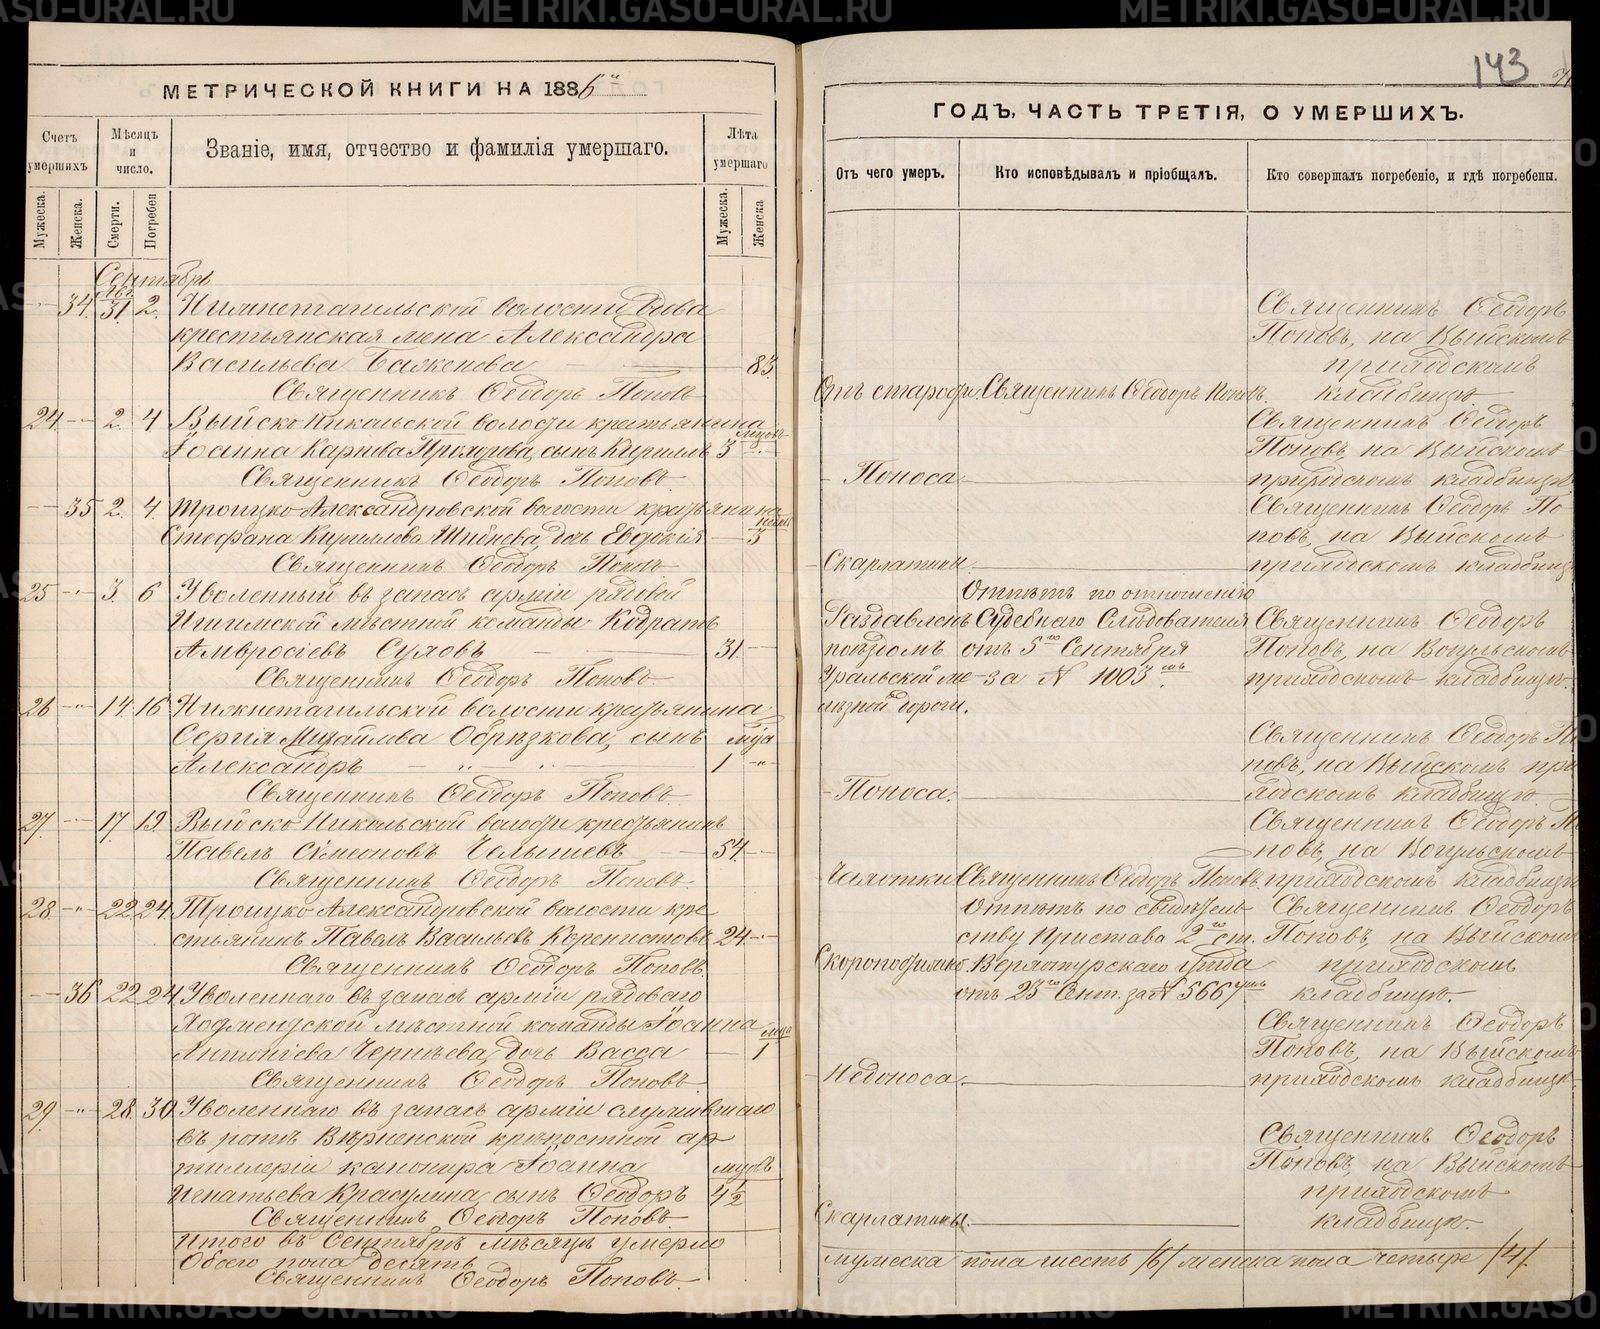 МЕТРИЧЕСКОЙ КНИГИ НА 1886
Счетъ умершихъ
Мѣсяцъ и число.
Званіе, имя, отчество и фамилія умершаго.
Лѣта умершаго
Мужеска.
Женска.
Смерти.
Погребен
Мужеска.
Женска
Сентябрь
34. 31. 2. Нижнетагильской волости вдова
крестьянская жена Александра
Васильева Баженова 83.
Священникъ Ѳеодоръ Поповъ
24. 2. 4. Выйско Никольской волости крестьянина
мѣсцов
Іоанна Карпова сынъ Кириллъ 3
Священникъ Ѳеодоръ Поповъ.
35 2. 4. Троицко Александровской волости крестьянина
Стефана Кириллова дочь Евдокія 3
Священникъ Ѳеодоръ Поповъ
25 3. 6 Уволенный въ запасъ арміи рядовой
Ишимской мѣстной команды Кодратъ
Амвросіевъ Суховъ 31.
Священникъ Ѳеодоръ Поповъ.
26 14. 16 Нижнетагильской волости крестьянина
Сергія Михайлова Обрѣзкова, сынъ мца
Александръ 1
Священникъ Ѳеодоръ Поповъ.
27. 17. 19. Выйско Никольской волости крестьянинъ
Павелъ Сѵмеоновъ Челышевъ 54
Священникъ Ѳеодоръ Поповъ.
28. 22 24. Троицко Александровской волости кре
стьянинъ Павелъ Васильевъ Коренистовъ 24
Священникъ Ѳеодоръ Поповъ.
36 22 24 Уволеннаго въ запасъ арміи рядоваго
мѣстной команды Іоанна
мца
Антоніева дочь Васса 1
Священникъ Ѳеодоръ Поповъ
29. 28. 30. Уволеннаго въ запасъ арміи служившаго
въ ротѣ Вѣрненской крѣпостной ар
тиллеріи канонира Іоанна мцовъ
Игнатьева Красулина, сынъ Ѳеодоръ 4 1/2
Священникъ Ѳеодоръ Поповъ.
Итого въ Сентябрѣ мѣсяцѣ умерло
Обоего пола десять
Священникъ Ѳеодоръ Поповъ.
143
ГОДЪ, ЧАСТЬ ТРЕТІЯ, О УМЕРШИХЪ.
Отъ чего умеръ.
Кто исповѣдывалъ и пріобщалъ.
Кто совершалъ погребеніе, и гдѣ погребены.
Священникъ Ѳеодоръ
Поповъ, на Выйскомъ
приходскомъ
Отъ старости. Священникъ Ѳеодоръ Поповъ. кладбищѣ.
Священникъ Ѳеодоръ
Поповъ, на Выйскомъ
Поноса приходскомъ кладбищѣ
Священникъ Ѳеодоръ По-
повъ, на Выйскомъ
Скарлатины. приходскомъ кладбищѣ
Отпѣтъ по отношенію
Раздавленъ Судебнаго Слѣдователя Священникъ Ѳеодоръ
поѣздомъ отъ 5го Сентября Поповъ, на Вогульскомъ
Уральской же- за № 1003 приходскомъ кладбищѣ.
лѣзной дороги.
Священникъ Ѳеодоръ По
повъ, на Выйскомъ при
Поноса. ходскомъ кладбищѣ.
Священникъ Ѳеодоръ По
повъ, на Вогульскомъ
Чахотки Священникъ Ѳеодоръ Поповъ. приходскомъ кладбищѣ
Отпѣтъ по свидѣтель Священникъ Ѳеодоръ
ству Пристава 2го ст. Поповъ, на Выйскомъ
Скоропостижно Верхотурскаго уѣзда приходскомъ
отъ 23го Сент. за № 5667 кладбищѣ.
Священникъ Ѳеодоръ
Поповъ, на Выйскомъ
Недоноса. приходскомъ кладбищѣ.
Священникъ Ѳеодоръ
Поповъ, на Выйскомъ
приходскомъ
Скарлатины. кладбищѣ.
мужеска пола шесть /6/ женска пола четыре /4/.
METRIKI.GASO-URAL.RU